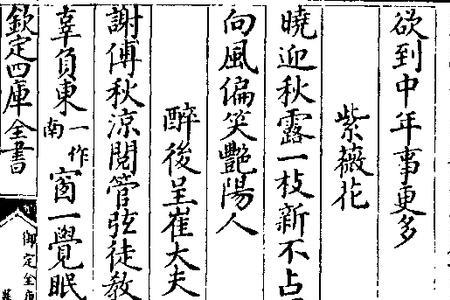 欲到中年事更多
紫薇花
曉迎秋露一枝新不占
向風偏笑艷陽人
醉後呈崔大夫
謝傅秋涼閱管弦徒教
辜負東一作南窗一覺眠
欽定四庫全書
御定全